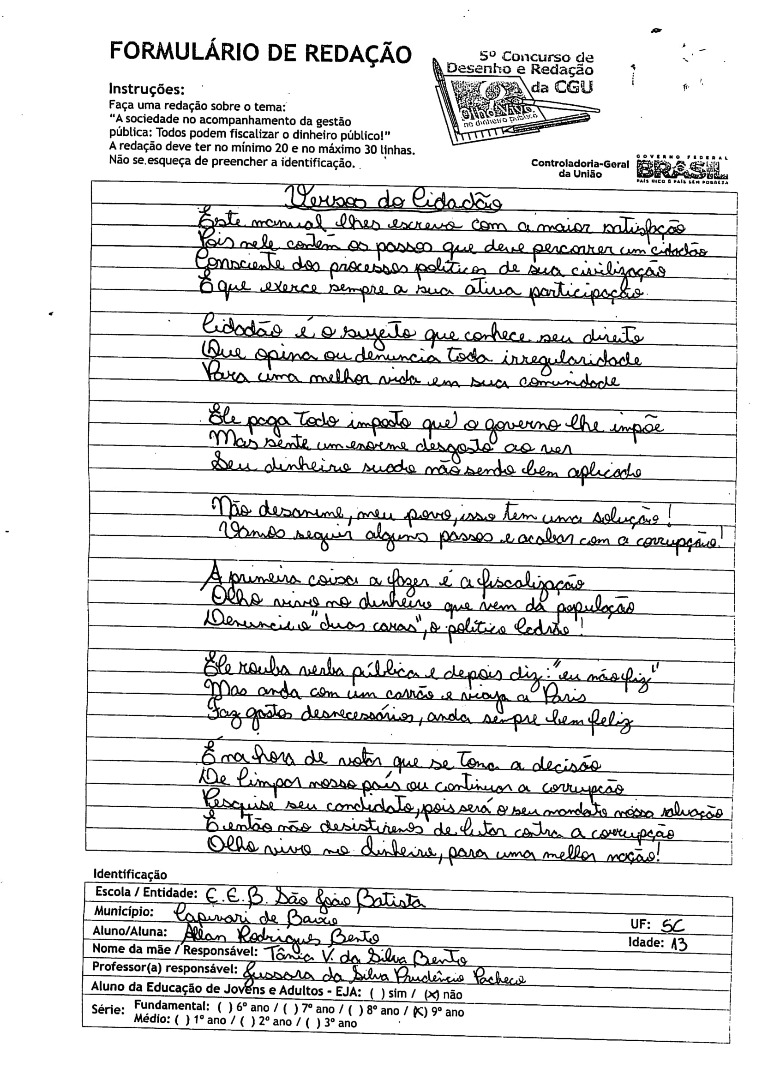 FORMULÁRIO DE REDAÇÃO
5º Concurso de
Desenho e Redação
da CGU
Olho Vivo
no dinheiro público
Instruções:
Faça uma redação sobre o tema:
"A sociedade no acompanhamento da gestão
pública: Todos podem fiscalizar o dinheiro público!"
A redação deve ter no mínimo 20 e no máximo 30 linhas.
Não se esqueça de preencher a identificação.
Controladoria-Geral
da União
GOVERNO FEDERAL
BRASIL
PAÍS RICO É PAÍS SEM POBREZA
Versos do Cidadão
Este manual lhes escrevo com a maior satisfação
Pois nele contém os passos que deve percorrer um cidadão
Consciente dos processos políticos de sua civilização
E que exerce sempre a sua ativa participação.
Cidadão é o sujeito que conhece seu direito
Que opina ou denuncia toda irregularidade
Para uma melhor vida em sua comunidade
Ele paga todo imposto que o governo lhe impõe
Mas sente um enorme desgosto ao ver
Seu dinheiro suado não sendo bem aplicado
Não desanime, meu povo, isso tem uma solução!
Vamos seguir alguns passos e acabar com a corrupção!
A primeira coisa a fazer é a fiscalização
Olho vivo no dinheiro que vem da população
Denuncie o "duas caras", o político ladrão!
Ele rouba verba pública e depois diz: "eu não fiz"
Mas anda com um carrão e viaja a Paris
Faz gastos desnecessários, anda sempre bem feliz
É na hora de votar que se toma a decisão
De limpar nosso país ou continuar a corrupção
Pesquise seu candidato, pois será o seu mandato nossa salvação
E então não desistiremos de lutar contra a corrupção
Olho vivo no dinheiro, para uma melhor nação!
Identificação
Escola / Entidade: E.E.B. São João Batista
Município: Capivari de Baixo UF: SC
Aluno/Aluna: Allan Rodrigues Bento Idade: 13
Nome da mãe / Responsável: Tânia V. da Silva Bento
Professor(a) responsável: Jussara da Silva Prudêncio Pacheco
Aluno da Educação de Jovens e Adultos - EJA: ( ) sim / (x) não
Série: Fundamental: ( ) 6º ano / ( ) 7º ano / ( ) 8º ano / (x) 9º ano
Médio: ( ) 1º ano / ( ) 2º ano / ( ) 3º ano